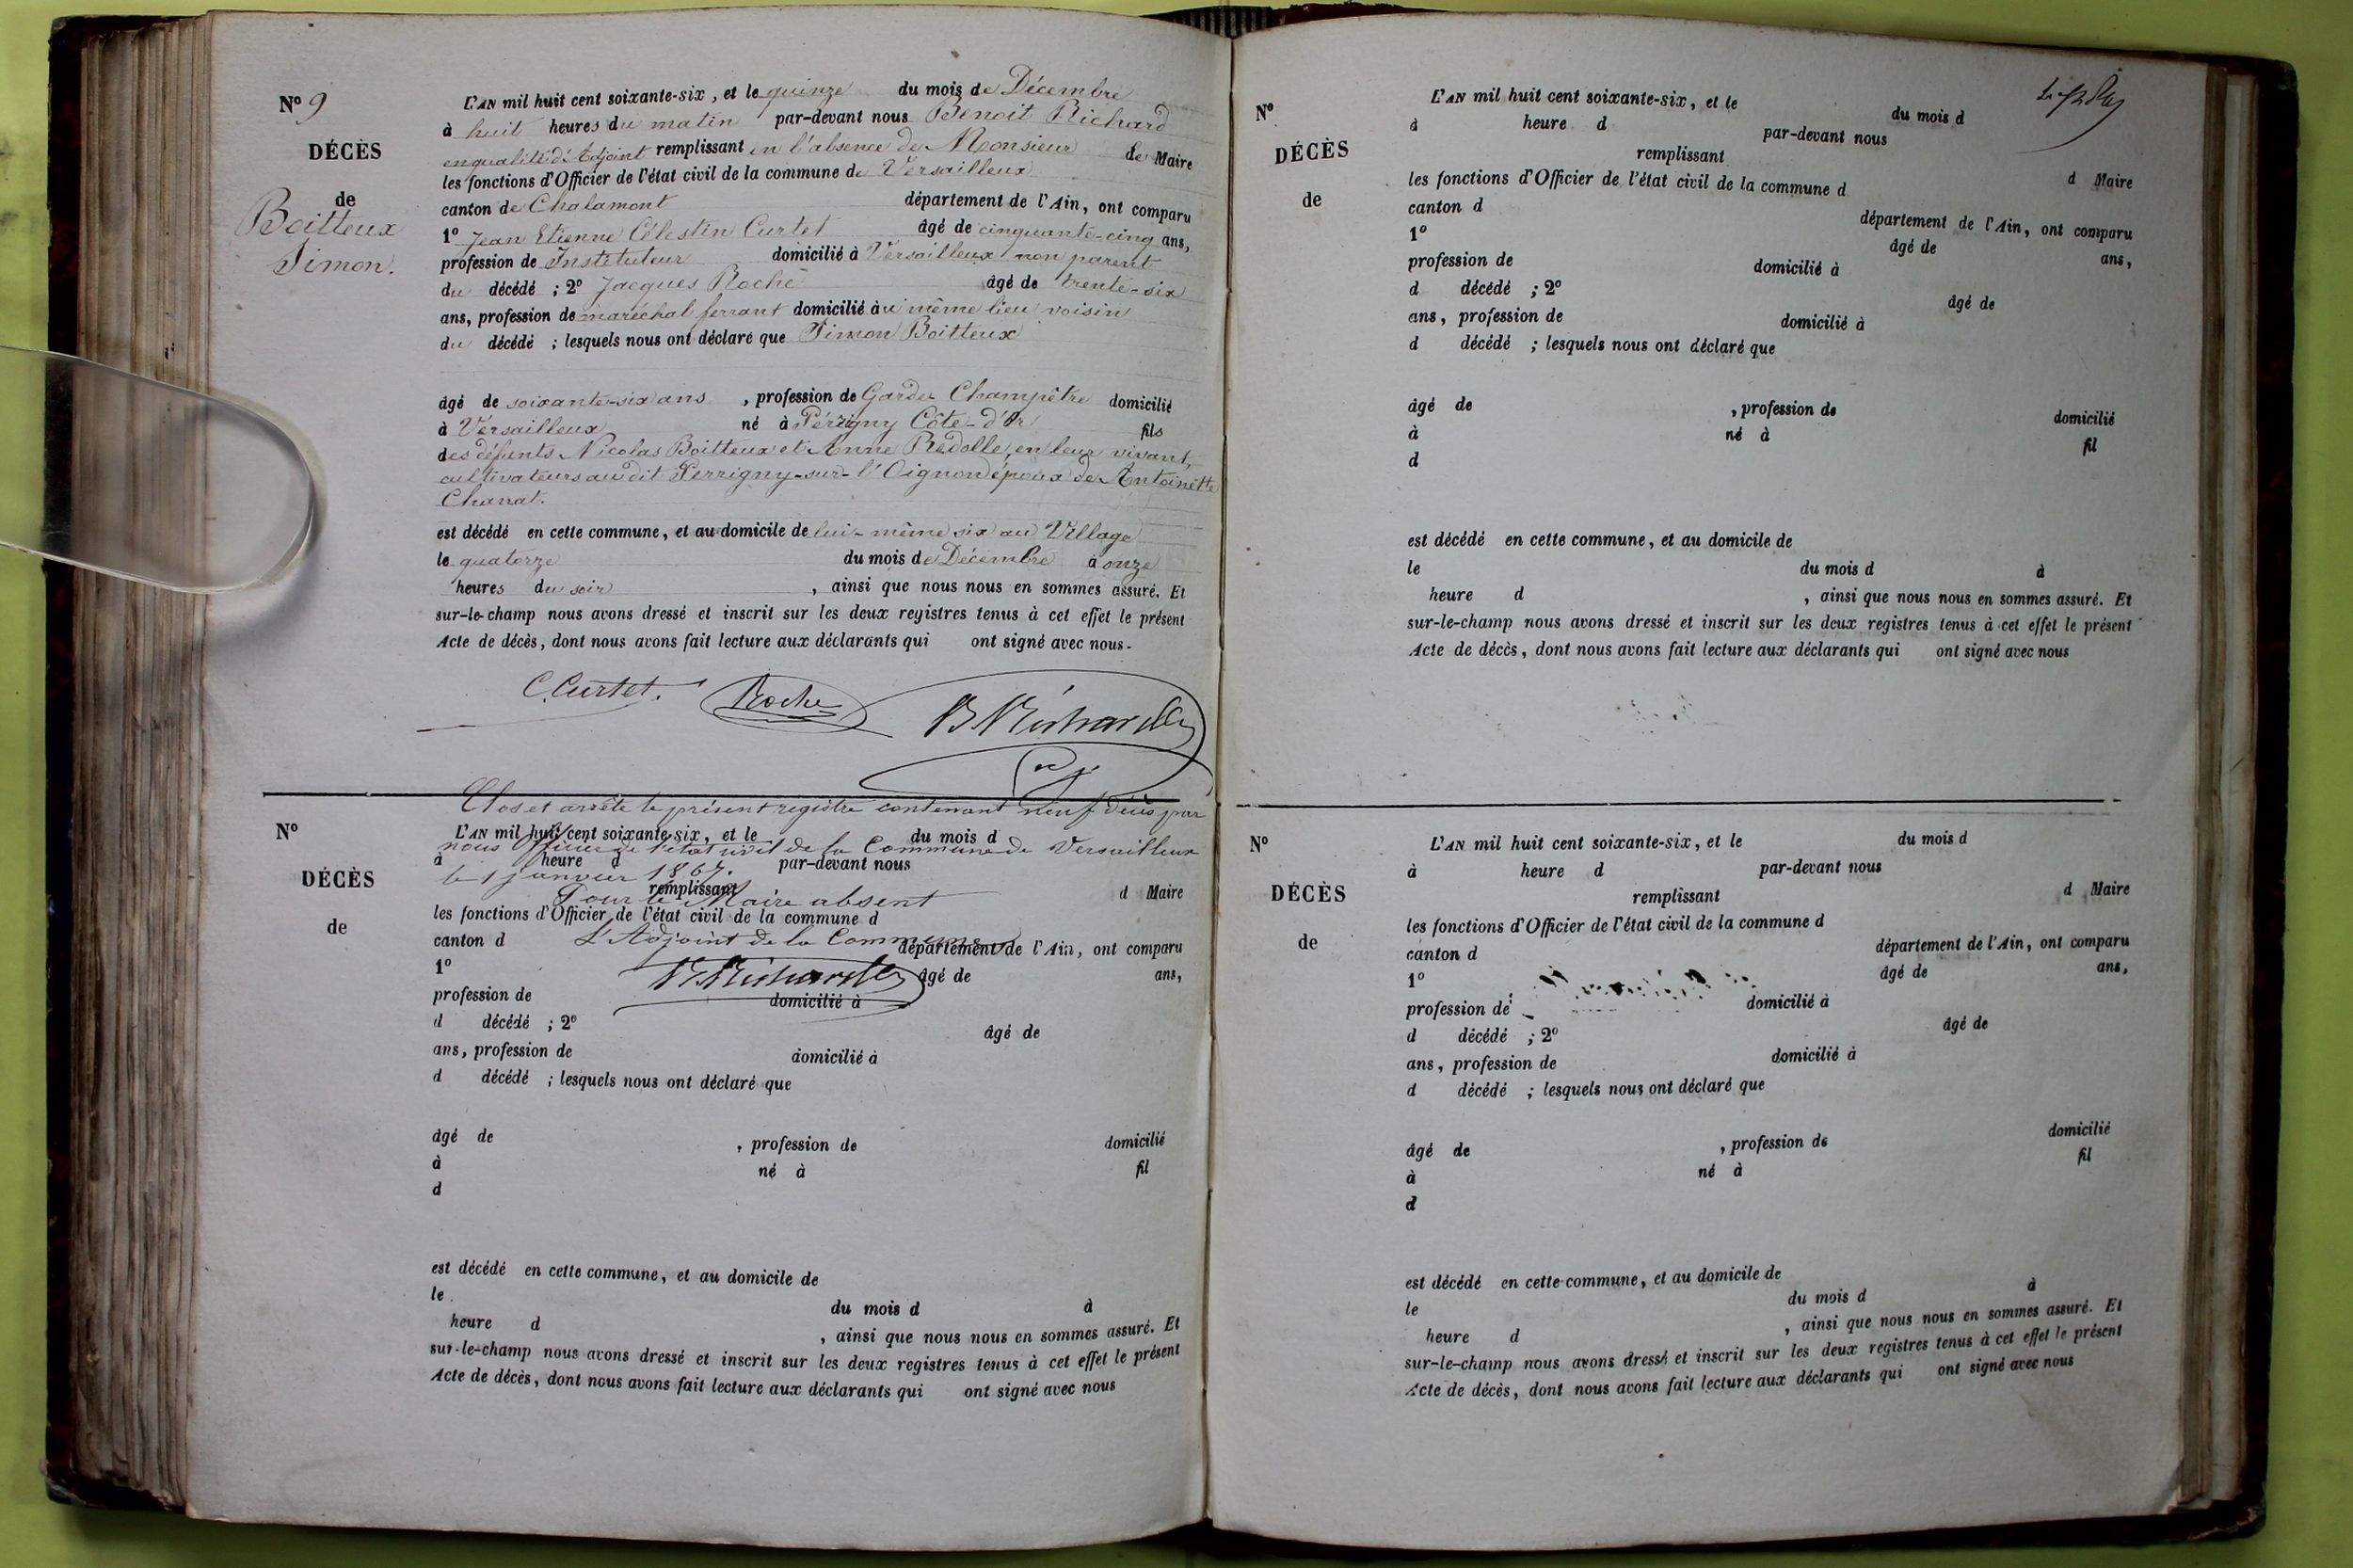 N° 9
DÉCÈS
de
Boitteux
Simon.
L'AN mil huit cent soixante-six, et le quinze du mois de Décembre
à huit heures du matin par-devant nous Benoit Richard
en qualité d'Adjoint remplissant en l'absence de Monsieur le Maire
les fonctions d'Officier de l'état civil de la commune de Versailleux
canton de Chalamont département de l'Ain, ont comparu
1° Jean Etienne Célestin Curtet âgé de cinquante-cinq ans,
profession de Instituteur domicilié à Versailleux non parent
du décédé ; 2° Jacques Roche âgé de trente-six
ans, profession de maréchal ferrant domicilié au même lieu voisin
du décédé ; lesquels nous ont déclaré que Simon Boitteux
âgé de soixante-six ans , profession de Garde Champêtre domicilié
à Versailleux né à Périgny Côte-d'Or fils
des défunts Nicolas Boitteux et Anne Redolle, en leur vivant,
cultivateurs audit Perrigny-sur-l'Oignon époux de Antoinette
Charrat.
est décédé en cette commune, et au domicile de lui-même six au Village
le quatorze du mois de Décembre à onze
heures du soir , ainsi que nous nous en sommes assuré. Et
sur-le-champ nous avons dressé et inscrit sur les deux registres tenus à cet effet le présent
Acte de décès, dont nous avons fait lecture aux déclarants qui ont signé avec nous.
C. Curtet. Roche B Richard
Clos et arrêté le présent registre contenant neuf décès par
nous Officier de l'état civil de la Commune de Versailleux
le 1 janvier 1867.
Pour le Maire absent
L'Adjoint de la Commune
B Richard
N°
DÉCÈS
de
L'AN mil huit cent soixante-six, et le du mois d
à heure d par-devant nous
remplissant d Maire
les fonctions d'Officier de l'état civil de la commune d
canton d département de l'Ain, ont comparu
1° âgé de ans,
profession de domicilié à
d décédé ; 2° âgé de
ans, profession de domicilié à
d décédé ; lesquels nous ont déclaré que
âgé de , profession de domicilié
à né à fil
d
est décédé en cette commune, et au domicile de
le du mois d à
heure d , ainsi que nous nous en sommes assuré. Et
sur-le-champ nous avons dressé et inscrit sur les deux registres tenus à cet effet le présent
Acte de décès, dont nous avons fait lecture aux déclarants qui ont signé avec nous
N°
DÉCÈS
de
L'AN mil huit cent soixante-six, et le du mois d
à heure d par-devant nous
remplissant d Maire
les fonctions d'Officier de l'état civil de la commune d
canton d département de l'Ain, ont comparu
1° âgé de ans,
profession de domicilié à
d décédé ; 2° âgé de
ans, profession de domicilié à
d décédé ; lesquels nous ont déclaré que
âgé de , profession de domicilié
à né à fil
d
est décédé en cette commune, et au domicile de
le du mois d à
heure d , ainsi que nous nous en sommes assuré. Et
sur-le-champ nous avons dressé et inscrit sur les deux registres tenus à cet effet le présent
Acte de décès, dont nous avons fait lecture aux déclarants qui ont signé avec nous
N°
DÉCÈS
de
L'AN mil huit cent soixante-six, et le du mois d
à heure d par-devant nous
remplissant d Maire
les fonctions d'Officier de l'état civil de la commune d
canton d département de l'Ain, ont comparu
1° âgé de ans,
profession de domicilié à
d décédé ; 2° âgé de
ans, profession de domicilié à
d décédé ; lesquels nous ont déclaré que
âgé de , profession de domicilié
à né à fil
d
est décédé en cette commune, et au domicile de
le du mois d à
heure d , ainsi que nous nous en sommes assuré. Et
sur-le-champ nous avons dressé et inscrit sur les deux registres tenus à cet effet le présent
Acte de décès, dont nous avons fait lecture aux déclarants qui ont signé avec nous